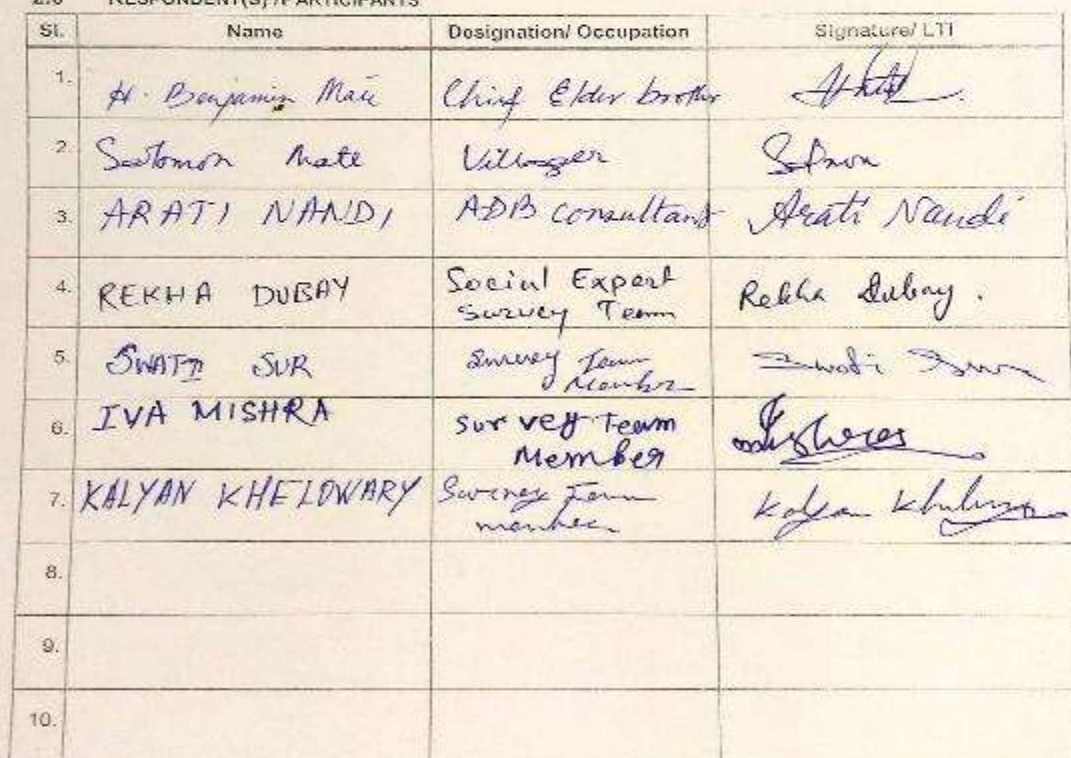 2.0 RESPONDENT(S) /PARTICIPANTS
Sl. Name Designation/ Occupation Signature/ LTI
1. H. Benjamin Mate Chief Elder brother
2. Solomon Mate Villager Solomon
3. ARATI NANDI ADB consultant Arati Nandi
4. REKHA DUBAY Social Expert Survey Team Rekha Dubay.
5. SWATI SUR Survey Team Member Swati Sur
6. IVA MISHRA Survey Team Member
7. KALYAN KHELOWARY Survey Team member Kalyan
8.
9.
10.